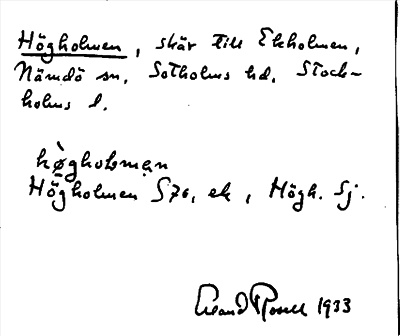 Högholmen, skär till Ekholmen,
Nämdö sn, Sotholms hd. Stock-
holms l.
hø̀gholman
Högholmen S76, ek, Högh. Sj.
1933